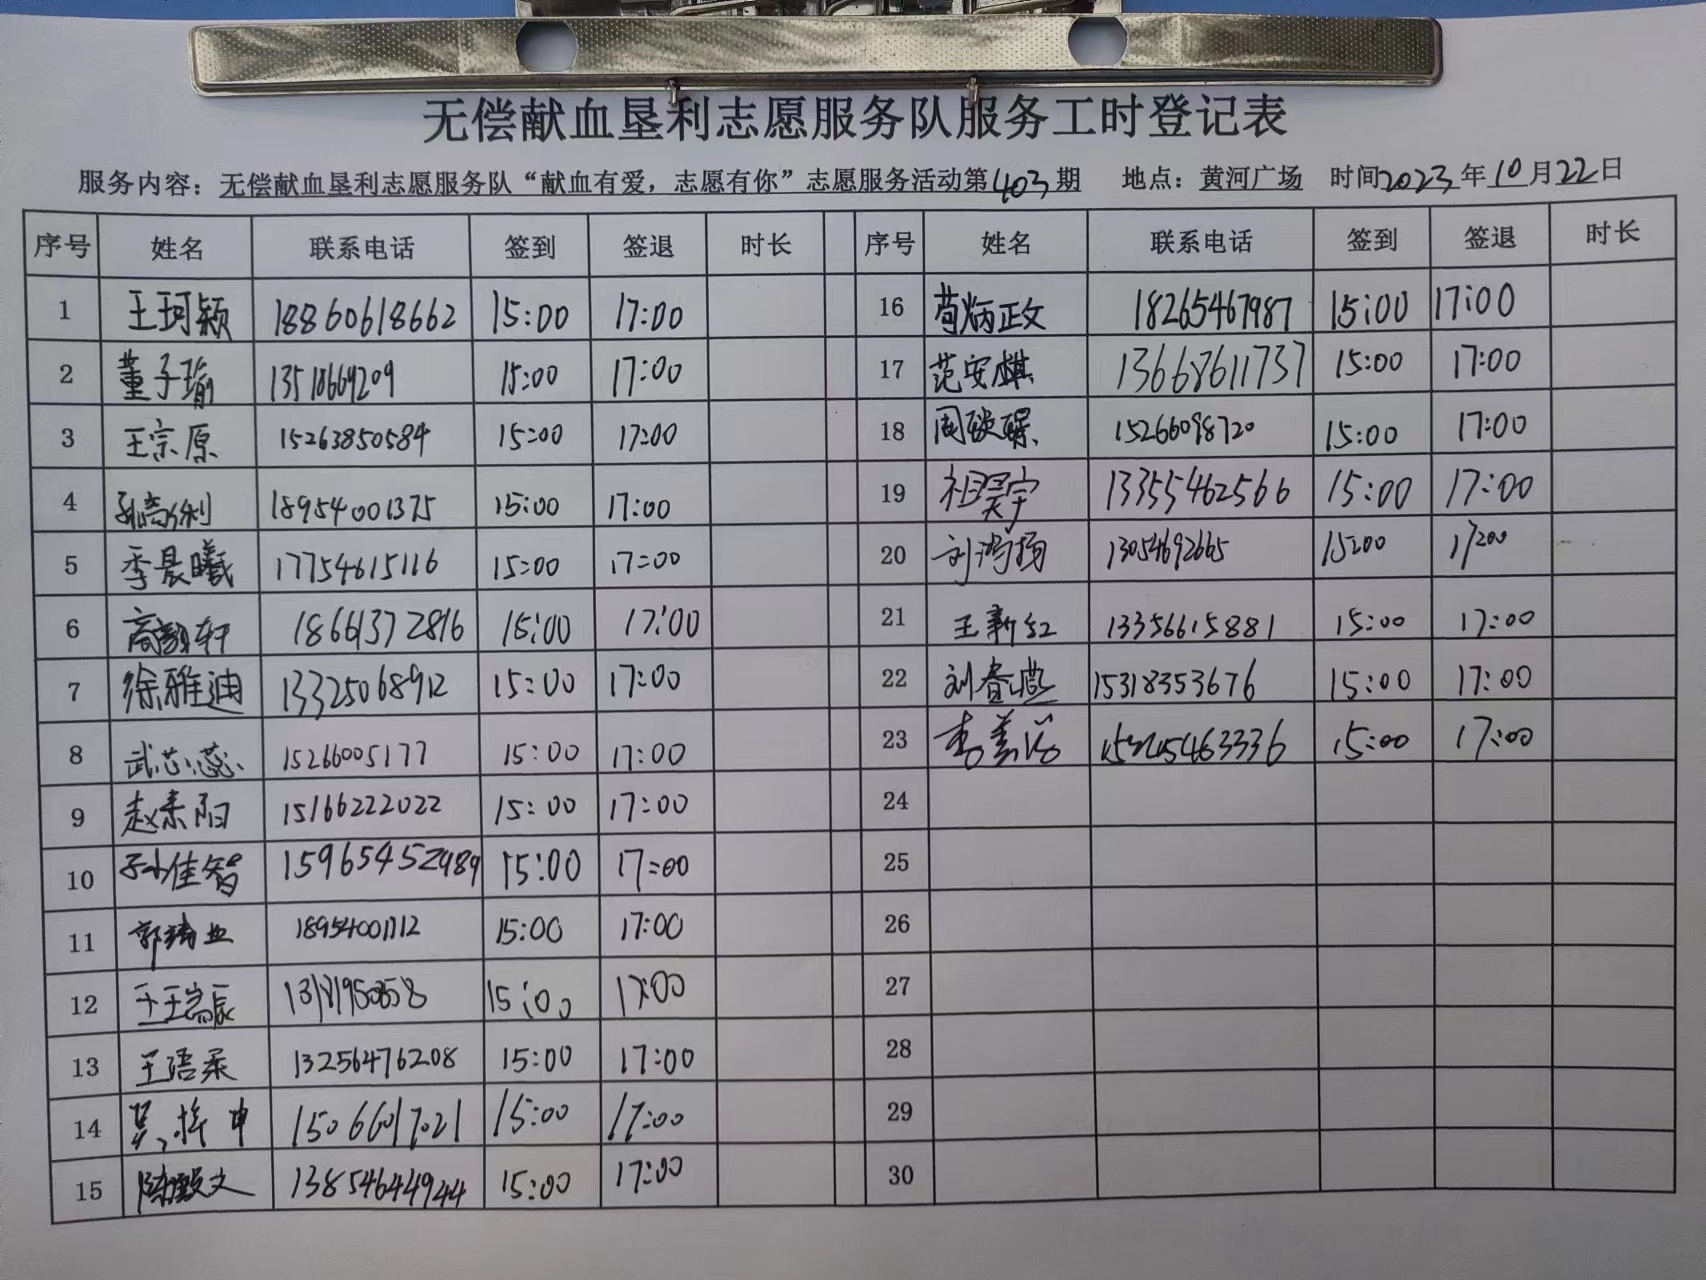 无偿献血垦利志愿服务队服务工时登记表
服务内容：无偿献血垦利志愿服务队“献血有爱，志愿有你”志愿服务活动第403期 地点：黄河广场 时间2023年10月22日
序号 姓名 联系电话 签到 签退 时长 序号 姓名 联系电话 签到 签退 时长
1 王珂颖 18860618662 15:00 17:00 16 苟炳正文 18265467987 15:00 17:00
2 董子瑜 15:00 17:00 17 范安麒 13668611737 15:00 17:00
3 王宗原 15263850584 15:00 17:00 18 周 15266098720 15:00 17:00
4 孙 利 18954001375 15:00 17:00 19 祖昊宇 13355462566 15:00 17:00
5 季晨曦 17754615116 15:00 17:00 20 刘鸿扬 13054692665 15:00 17:00
6 高 轩 18661372816 15:00 17:00 21 王新红 13356615881 15:00 17:00
7 徐雅迪 13325068912 15:00 17:00 22 刘春燕 15318353676 15:00 17:00
8 武芯蕊 15266005177 15:00 17:00 23 李 15:00 17:00
9 赵 阳 15166222022 15:00 17:00 24
10 孙佳智 15965452989 15:00 17:00 25
11 郭 业 18954001712 15:00 17:00 26
12 王瑞辰 15:00 17:00 27
13 王语柔 13256476208 15:00 17:00 28
14 吴 申 15066017021 15:00 17:00 29
15 陈毅文 13854644944 15:00 17:00 30